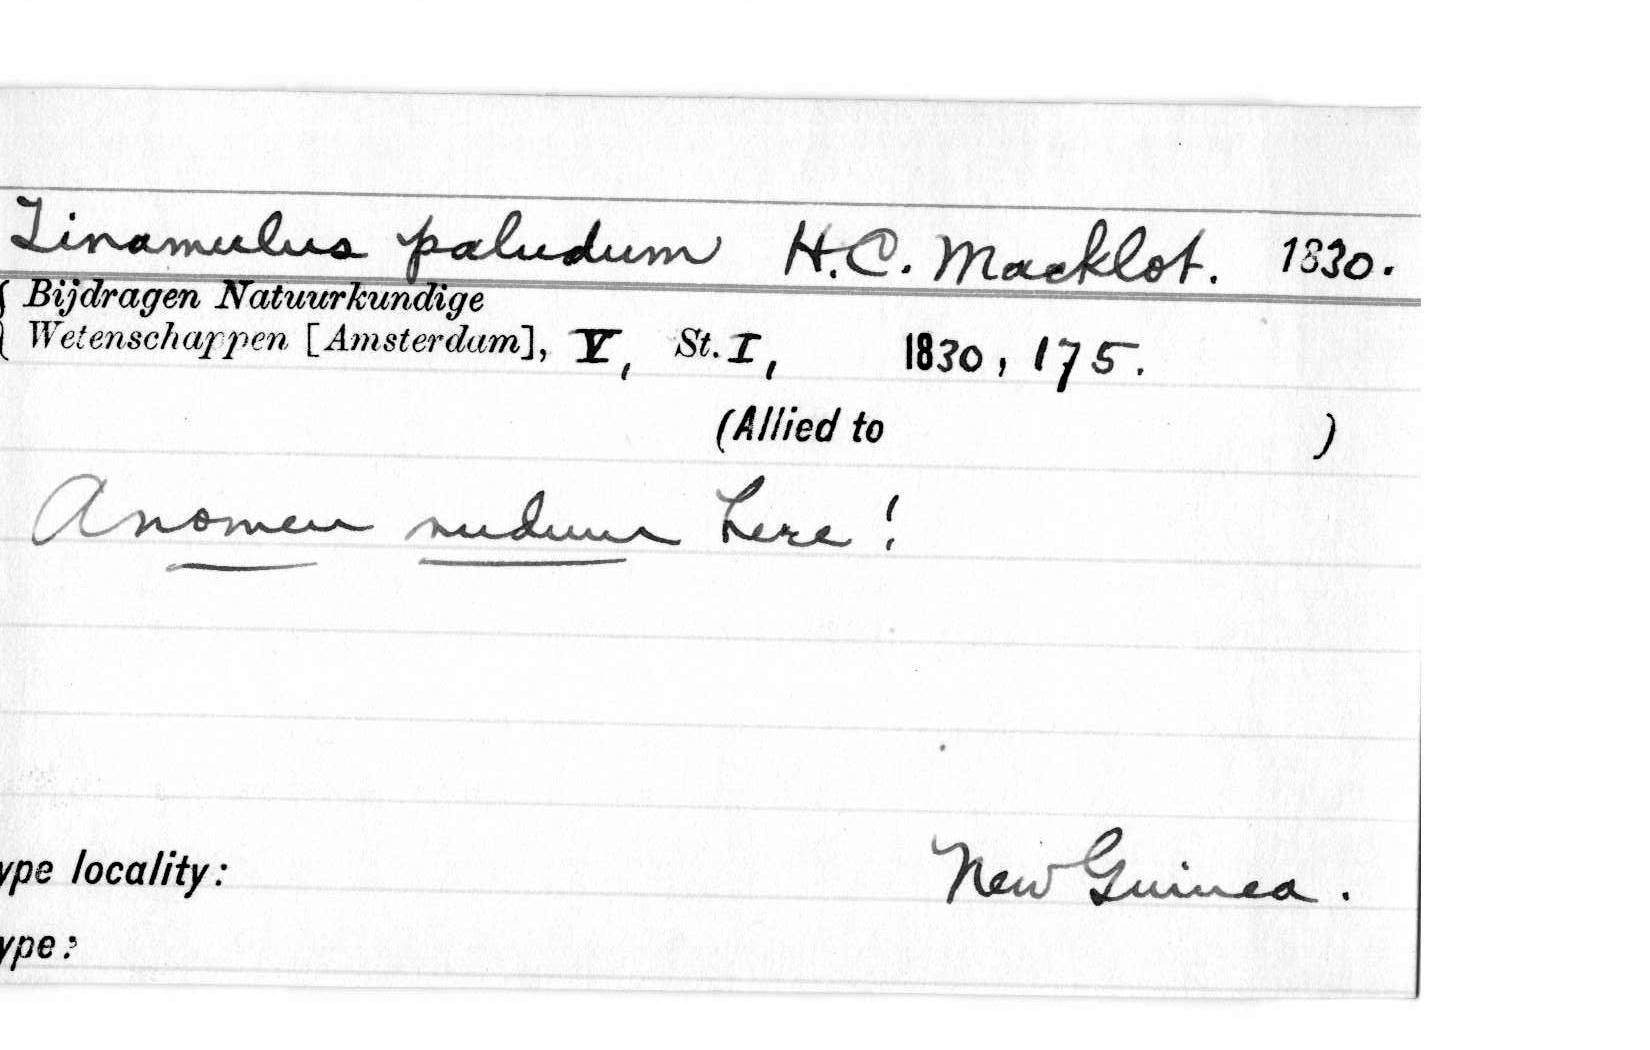 Tinamulus paludum H.C. Macklot. 1830.
{ Bijdragen Natuurkundige
Wetenschappen [Amsterdam], V, St. I, 1830, 175.
(Allied to )
A nomen nudum here!
ype locality: New Guinea.
ype: